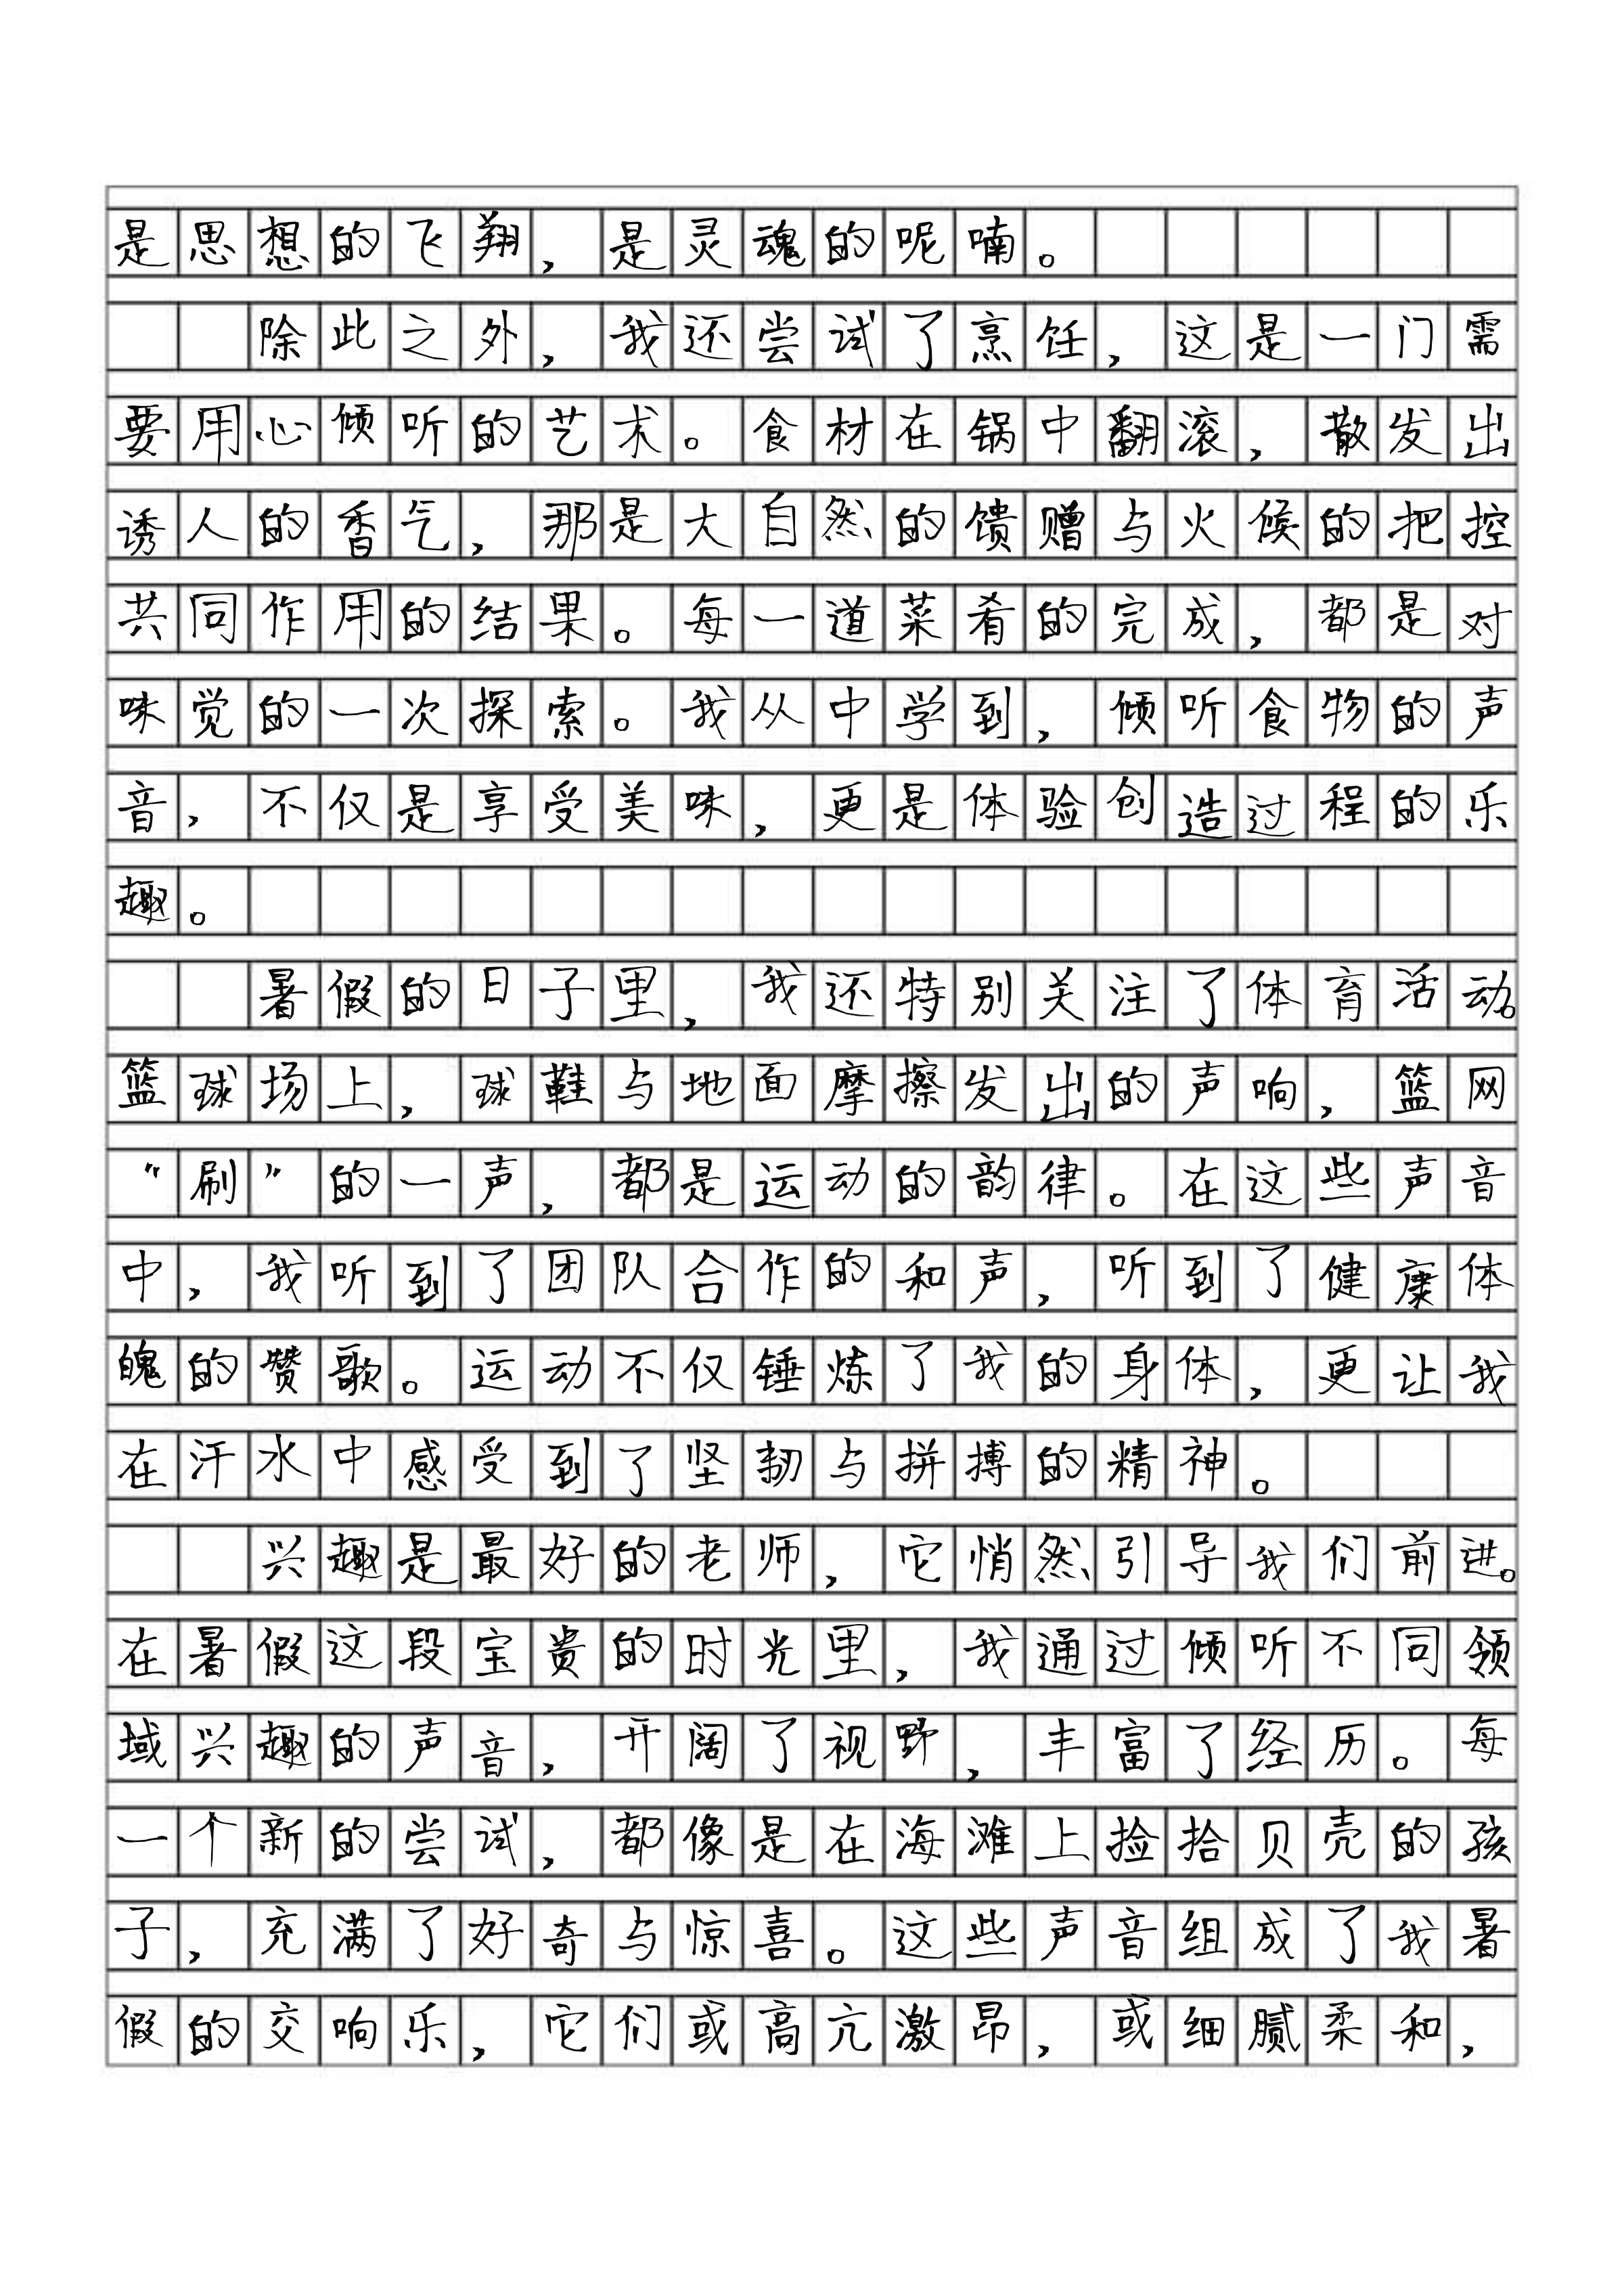 是思想的飞翔，是灵魂的呢喃。
除此之外，我还尝试了烹饪，这是一门需
要用心倾听的艺术。食材在锅中翻滚，散发出
诱人的香气，那是大自然的馈赠与火候的把控
共同作用的结果。每一道菜肴的完成，都是对
味觉的一次探索。我从中学到，倾听食物的声
音，不仅是享受美味，更是体验创造过程的乐
趣。
暑假的日子里，我还特别关注了体育活动。
篮球场上，球鞋与地面摩擦发出的声响，篮网
“刷”的一声，都是运动的韵律。在这些声音
中，我听到了团队合作的和声，听到了健康体
魄的赞歌。运动不仅锤炼了我的身体，更让我
在汗水中感受到了坚韧与拼搏的精神。
兴趣是最好的老师，它悄然引导我们前进。
在暑假这段宝贵的时光里，我通过倾听不同领
域兴趣的声音，开阔了视野，丰富了经历。每
一个新的尝试，都像是在海滩上捡拾贝壳的孩
子，充满了好奇与惊喜。这些声音组成了我暑
假的交响乐，它们或高亢激昂，或细腻柔和，